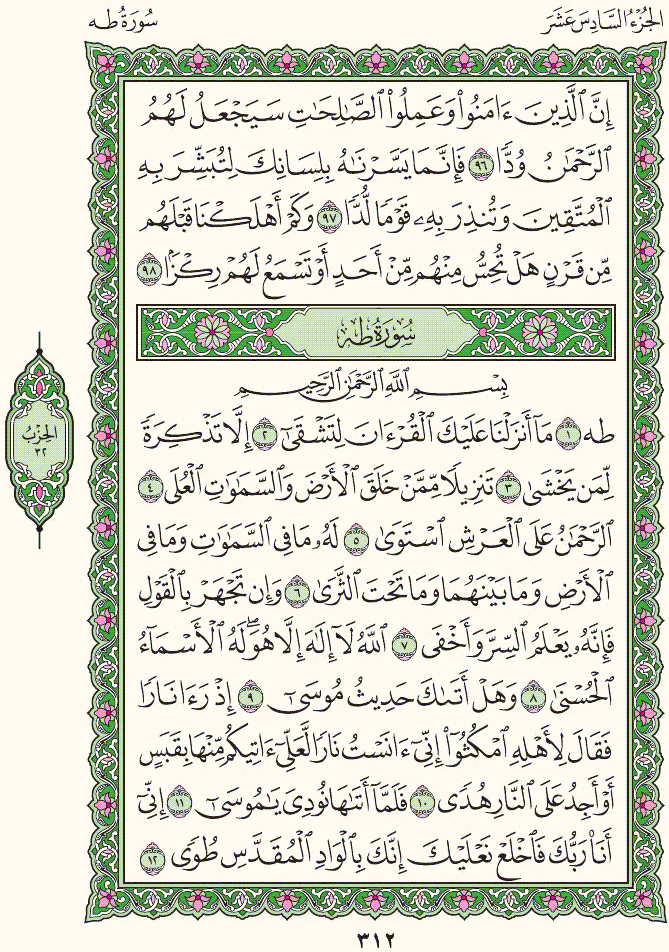 الجُزْءُ السَّادِسَ عَشَرَ
سُورَةُ طه
إِنَّ ٱلَّذِينَ ءَامَنُوا۟ وَعَمِلُوا۟ ٱلصَّٰلِحَٰتِ سَيَجْعَلُ لَهُمُ
ٱلرَّحْمَٰنُ وُدًّا ٩٦ فَإِنَّمَا يَسَّرْنَٰهُ بِلِسَانِكَ لِتُبَشِّرَ بِهِ
ٱلْمُتَّقِينَ وَتُنذِرَ بِهِۦ قَوْمًا لُّدًّا ٩٧ وَكَمْ أَهْلَكْنَا قَبْلَهُم
مِّن قَرْنٍ هَلْ تُحِسُّ مِنْهُم مِّنْ أَحَدٍ أَوْ تَسْمَعُ لَهُمْ رِكْزًۢا ٩٨
سُورَةُ طه
بِسْمِ ٱللَّهِ ٱلرَّحْمَٰنِ ٱلرَّحِيمِ
طه ١ مَآ أَنزَلْنَا عَلَيْكَ ٱلْقُرْءَانَ لِتَشْقَىٰٓ ٢ إِلَّا تَذْكِرَةً
لِّمَن يَخْشَىٰ ٣ تَنزِيلًا مِّمَّنْ خَلَقَ ٱلْأَرْضَ وَٱلسَّمَٰوَٰتِ ٱلْعُلَى ٤
ٱلرَّحْمَٰنُ عَلَى ٱلْعَرْشِ ٱسْتَوَىٰ ٥ لَهُۥ مَا فِى ٱلسَّمَٰوَٰتِ وَمَا فِى
ٱلْأَرْضِ وَمَا بَيْنَهُمَا وَمَا تَحْتَ ٱلثَّرَىٰ ٦ وَإِن تَجْهَرْ بِٱلْقَوْلِ
فَإِنَّهُۥ يَعْلَمُ ٱلسِّرَّ وَأَخْفَى ٧ ٱللَّهُ لَآ إِلَٰهَ إِلَّا هُوَ ۖ لَهُ ٱلْأَسْمَآءُ
ٱلْحُسْنَىٰ ٨ وَهَلْ أَتَىٰكَ حَدِيثُ مُوسَىٰٓ ٩ إِذْ رَءَا نَارًا
فَقَالَ لِأَهْلِهِ ٱمْكُثُوٓا۟ إِنِّىٓ ءَانَسْتُ نَارًا لَّعَلِّىٓ ءَاتِيكُم مِّنْهَا بِقَبَسٍ
أَوْ أَجِدُ عَلَى ٱلنَّارِ هُدًى ١٠ فَلَمَّآ أَتَىٰهَا نُودِىَ يَٰمُوسَىٰٓ ١١ إِنِّىٓ
أَنَا۠ رَبُّكَ فَٱخْلَعْ نَعْلَيْكَ إِنَّكَ بِٱلْوَادِ ٱلْمُقَدَّسِ طُوًى ١٢
الحِزْبُ
٣٢
٣١٢